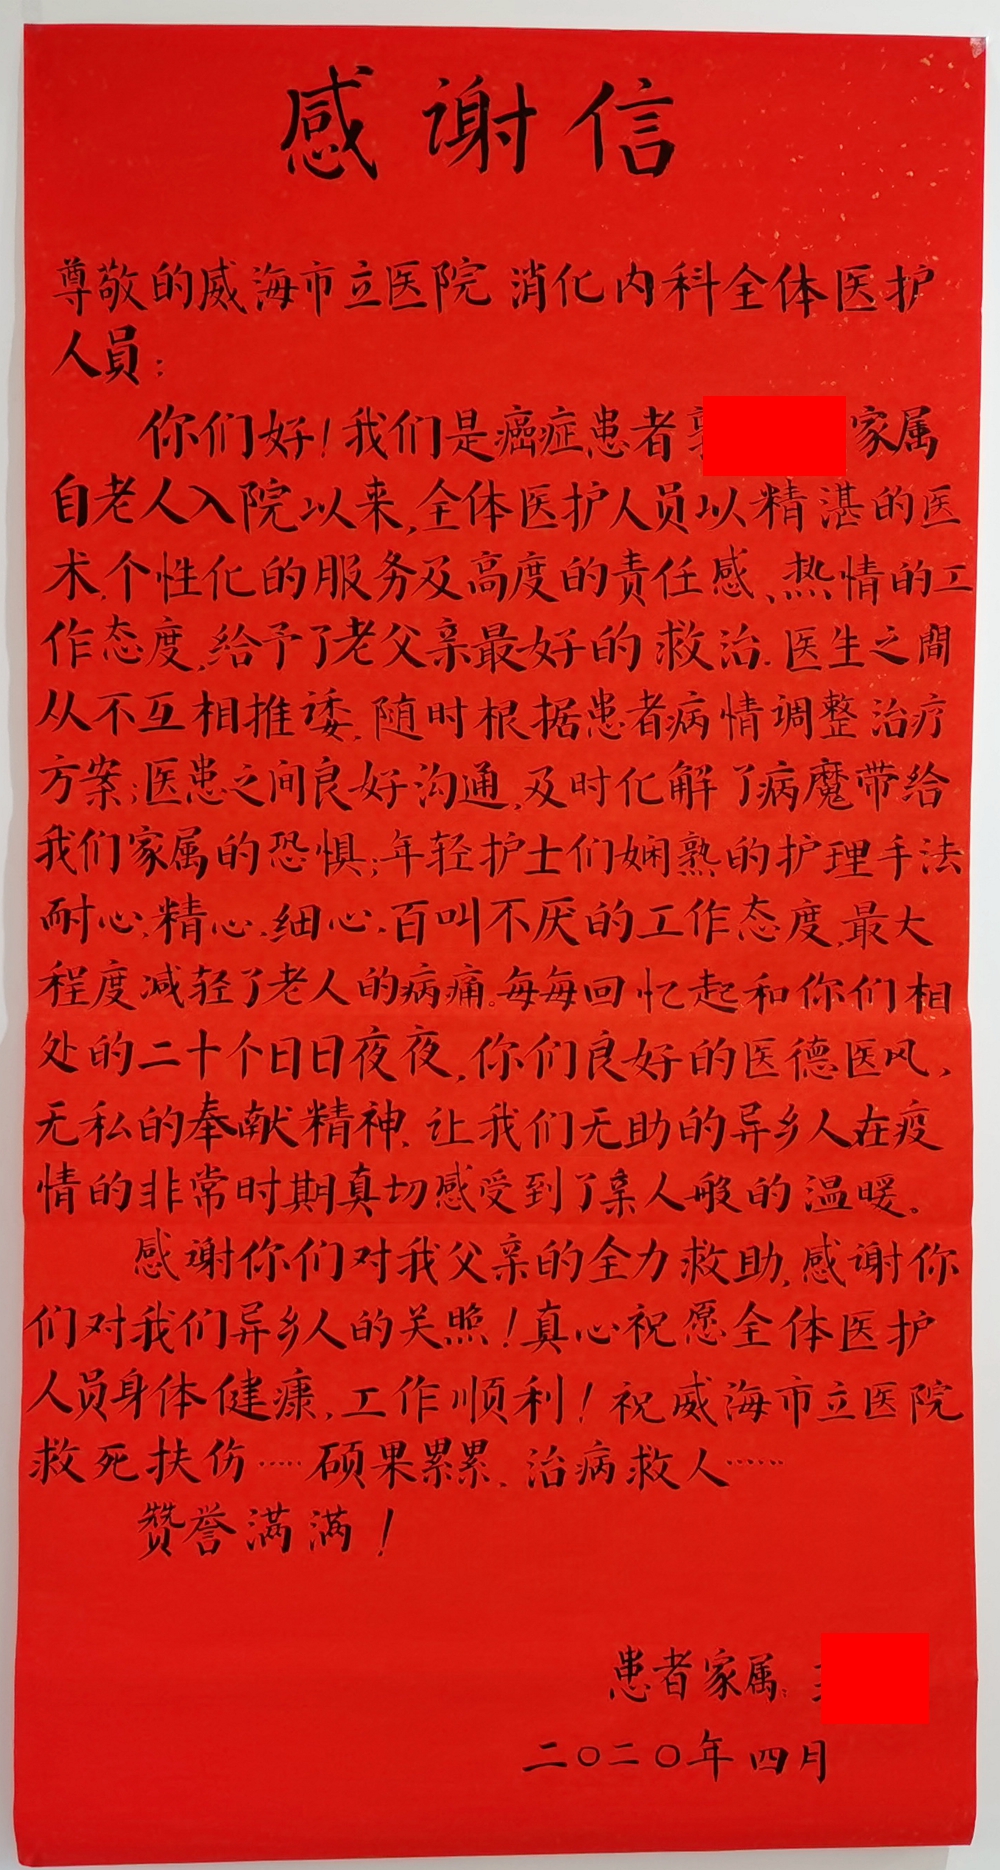 感谢信
尊敬的威海市立医院消化内科全体医护
人員:
你们好!我们是癌症患者 家属
自老人入院以来,全体医护人员以精湛的医
术,个性化的服务及高度的责任感、热情的工
作态度,给予了老父亲最好的救治.医生之間
从不互相推诿,随时根据患者病情调整治疗
方案;医患之间良好沟通,及时化解了病魔带给
我们家属的恐惧;年轻护士们娴熟的护理手法
耐心,精心,细心,百叫不厌的工作态度,最大
程度减轻了老人的病痛。每每回忆起和你们相
处的二十个日日夜夜,你们良好的医德医风,
无私的奉献精神,让我们无助的异乡人在疫
情的非常时期真切感受到了亲人般的温暖。
感谢你们对我父亲的全力救助,感谢你
们对我们异乡人的关照!真心祝愿全体医护
人员身体健康,工作顺利!祝威海市立医院
救死扶伤……硕果累累、治病救人……
赞誉满满!
患者家属:
二〇二〇年四月